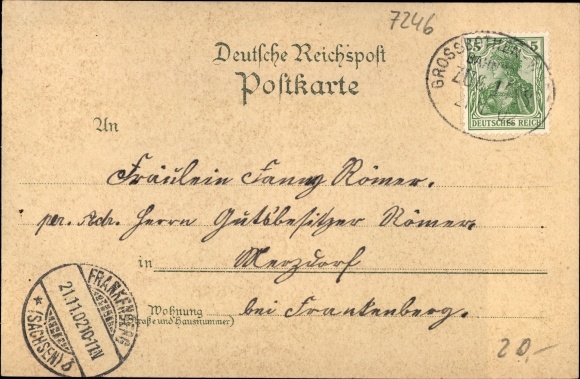 7246
Deutsche Reichspost
Postkarte
5
DEUTSCHES REICH
GROSSBOTHEN
BAHNH
ZUG
An
Fräulein Fanny Römer.
per. Adr. Herrn Gutsbesitzer Römer.
in Merzdorf
Wohnung bei Frankenberg.
(Straße und Hausnummer)
FRANKENBERG
21.11.02 10-11V
* (SACHSEN) b
20,-